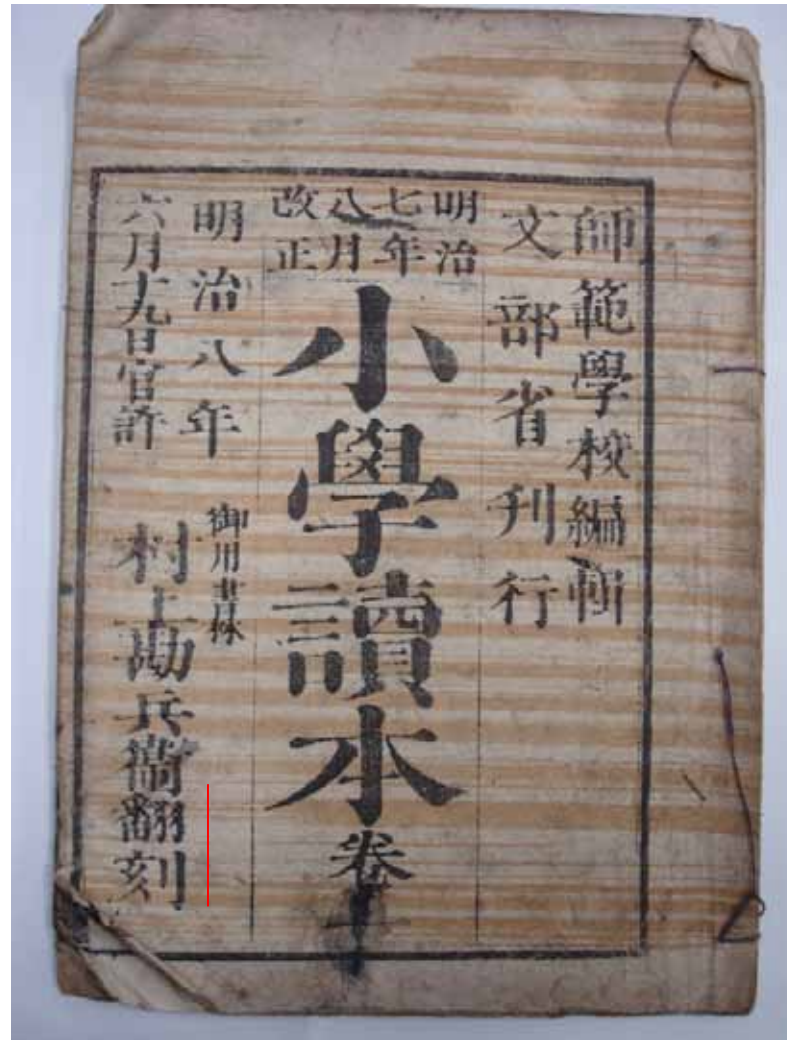 師範學校編輯
文部省刊行
明治
七年
八月
改正
小學讀本卷
明治八年
六月十九日官許
御用書林
村上勘兵衞翻刻